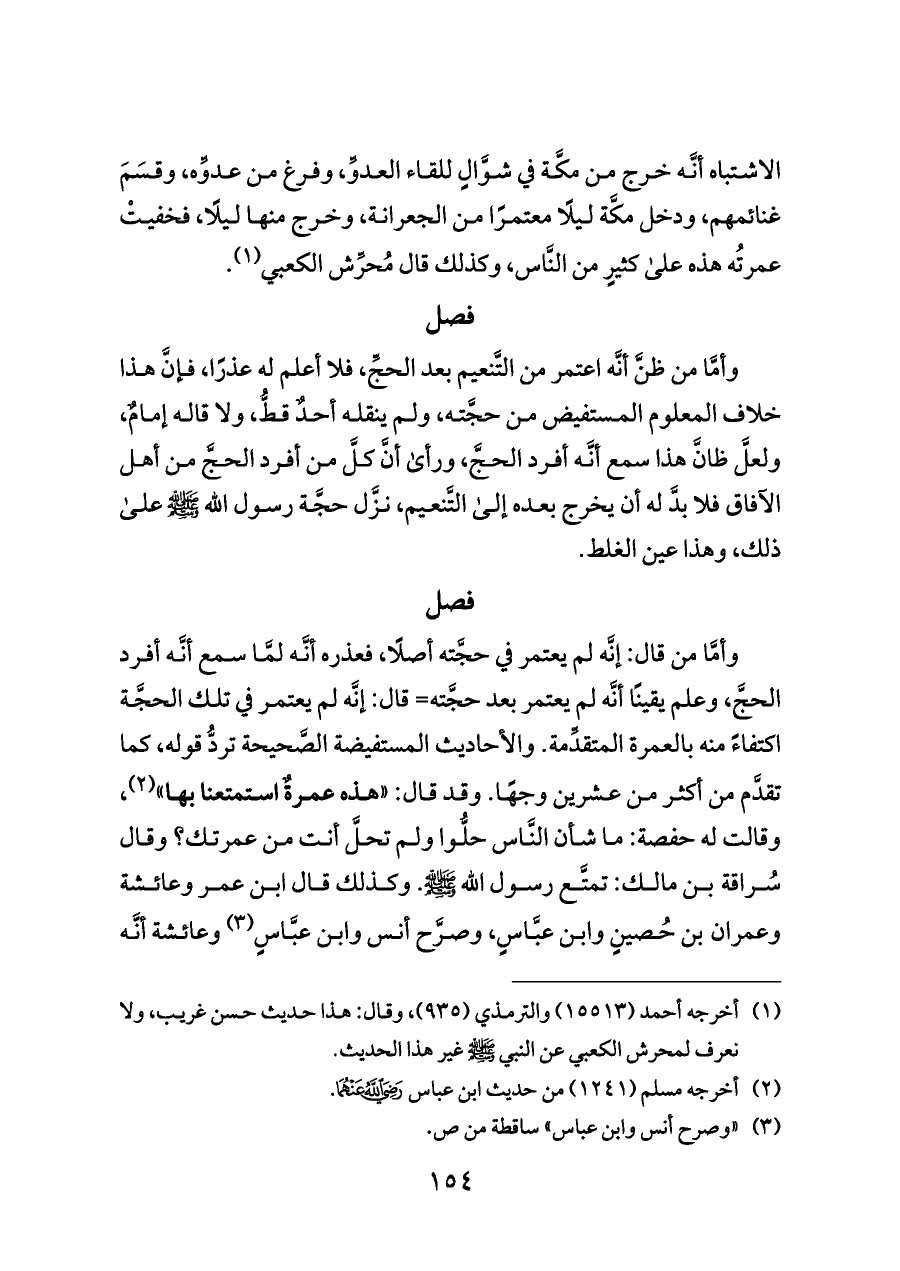 الاشتباه أنَّه خرج من مكَّة في شوَّالٍ للقاء العدوِّ، وفرغ من عدوِّه، وقسَمَ
غنائمهم، ودخل مكَّة ليلًا معتمرًا من الجعرانة، وخرج منها ليلًا، فخفيتْ
عمرتُه هذه علىٰ كثيرٍ من النَّاس، وكذلك قال مُحرِّش الكعبي(١).
فصل
وأمَّا من ظنَّ أنَّه اعتمر من التَّنعيم بعد الحجِّ، فلا أعلم له عذرًا، فإنَّ هذا
خلاف المعلوم المستفيض من حجَّته، ولم ينقله أحدٌ قطُّ، ولا قاله إمامٌ،
ولعلَّ ظانَّ هذا سمع أنَّه أفرد الحجَّ، ورأىٰ أنَّ كلَّ من أفرد الحجَّ من أهل
الآفاق فلا بدَّ له أن يخرج بعده إلىٰ التَّنعيم، نزَّل حجَّة رسول الله ﷺ علىٰ
ذلك، وهذا عين الغلط.
فصل
وأمَّا من قال: إنَّه لم يعتمر في حجَّته أصلًا، فعذره أنَّه لمَّا سمع أنَّه أفرد
الحجَّ، وعلم يقينًا أنَّه لم يعتمر بعد حجَّته= قال: إنَّه لم يعتمر في تلك الحجَّة
اكتفاءً منه بالعمرة المتقدِّمة. والأحاديث المستفيضة الصَّحيحة تردُّ قوله، كما
تقدَّم من أكثر من عشرين وجهًا. وقد قال: «هذه عمرةٌ استمتعنا بها»(٢)،
وقالت له حفصة: ما شأن النَّاس حلُّوا ولم تحلَّ أنت من عمرتك؟ وقال
سُراقة بن مالك: تمتَّع رسول الله ﷺ. وكذلك قال ابن عمر وعائشة
وعمران بن حُصينٍ وابن عبَّاسٍ، وصرَّح أنس وابن عبَّاسٍ(٣) وعائشة أنَّه
(١) أخرجه أحمد (١٥٥١٣) والترمذي (٩٣٥)، وقال: هذا حديث حسن غريب، ولا
نعرف لمحرش الكعبي عن النبي ﷺ غير هذا الحديث.
(٢) أخرجه مسلم (١٢٤١) من حديث ابن عباس رَضِيَ اللَّهُ عَنْهُمَا.
(٣) «وصرح أنس وابن عباس» ساقطة من ص.
١٥٤